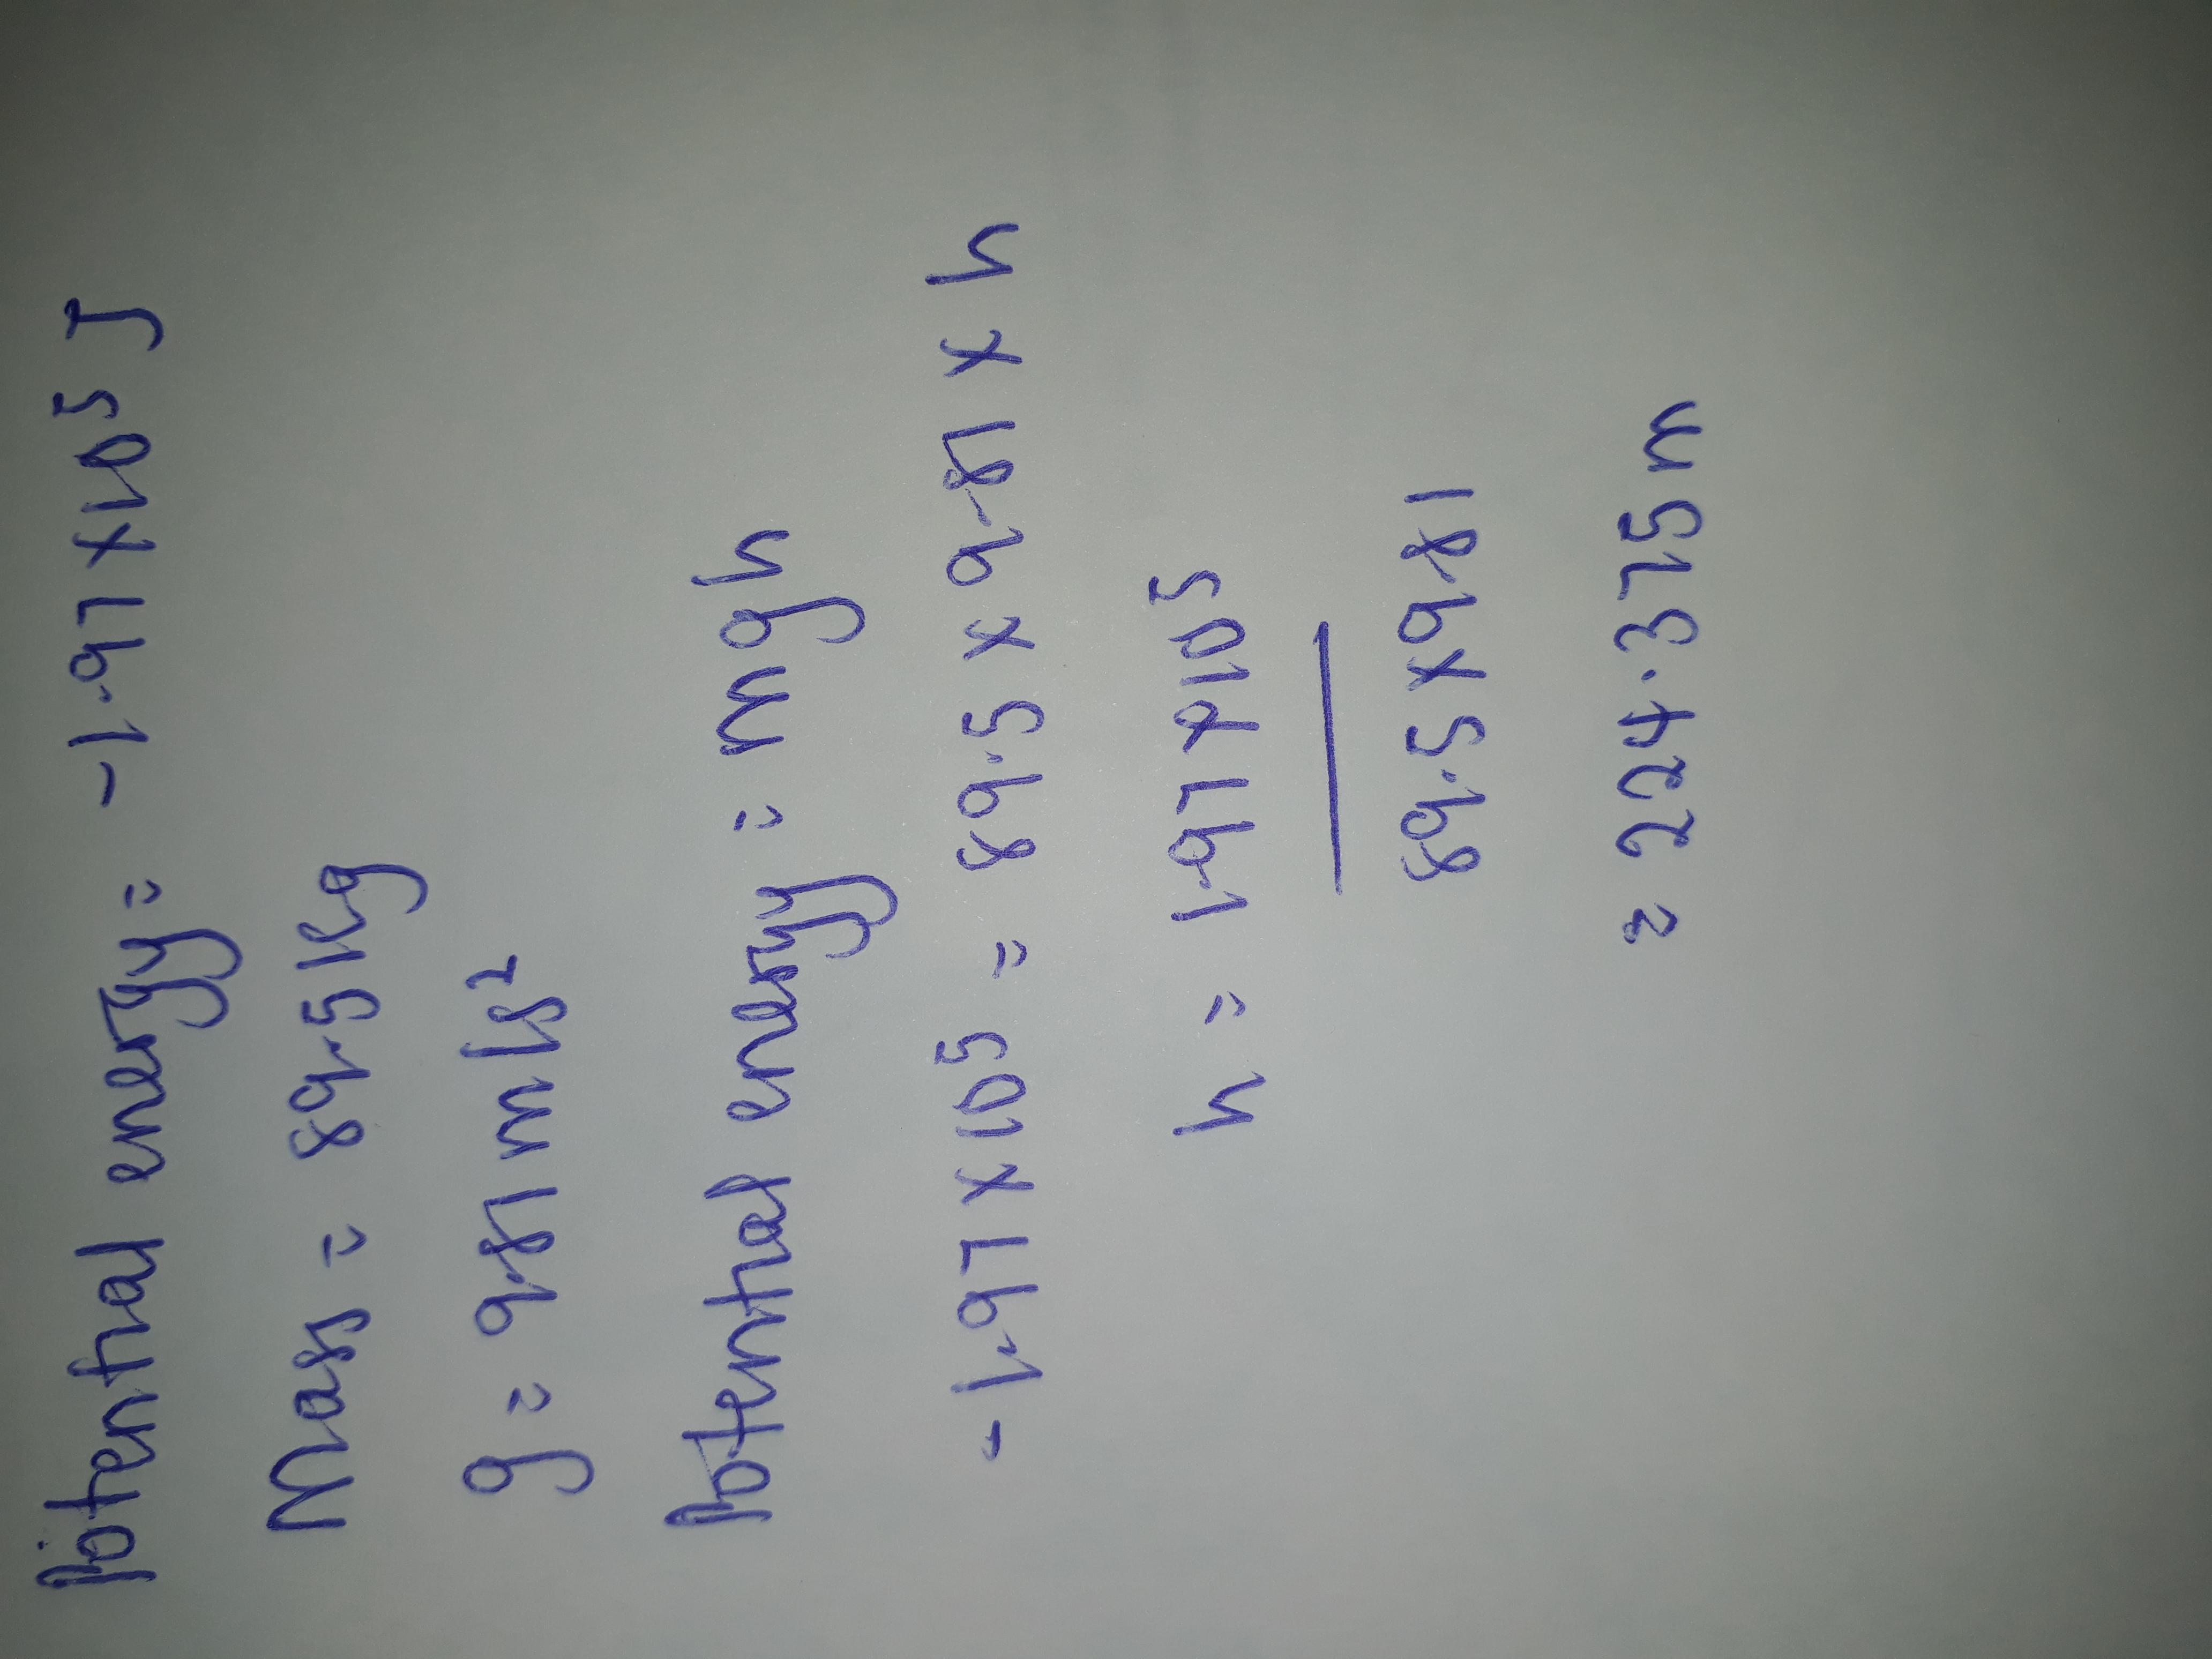 Potential energy = -1.97 x 10⁵ J
Mass = 89.5 kg
g = 9.81 m/s²
Potential energy = mgh
-1.97 x 10⁵ = 89.5 x 9.81 x h
h = 1.97 x 10⁵
89.5 x 9.81
= 224.375 m